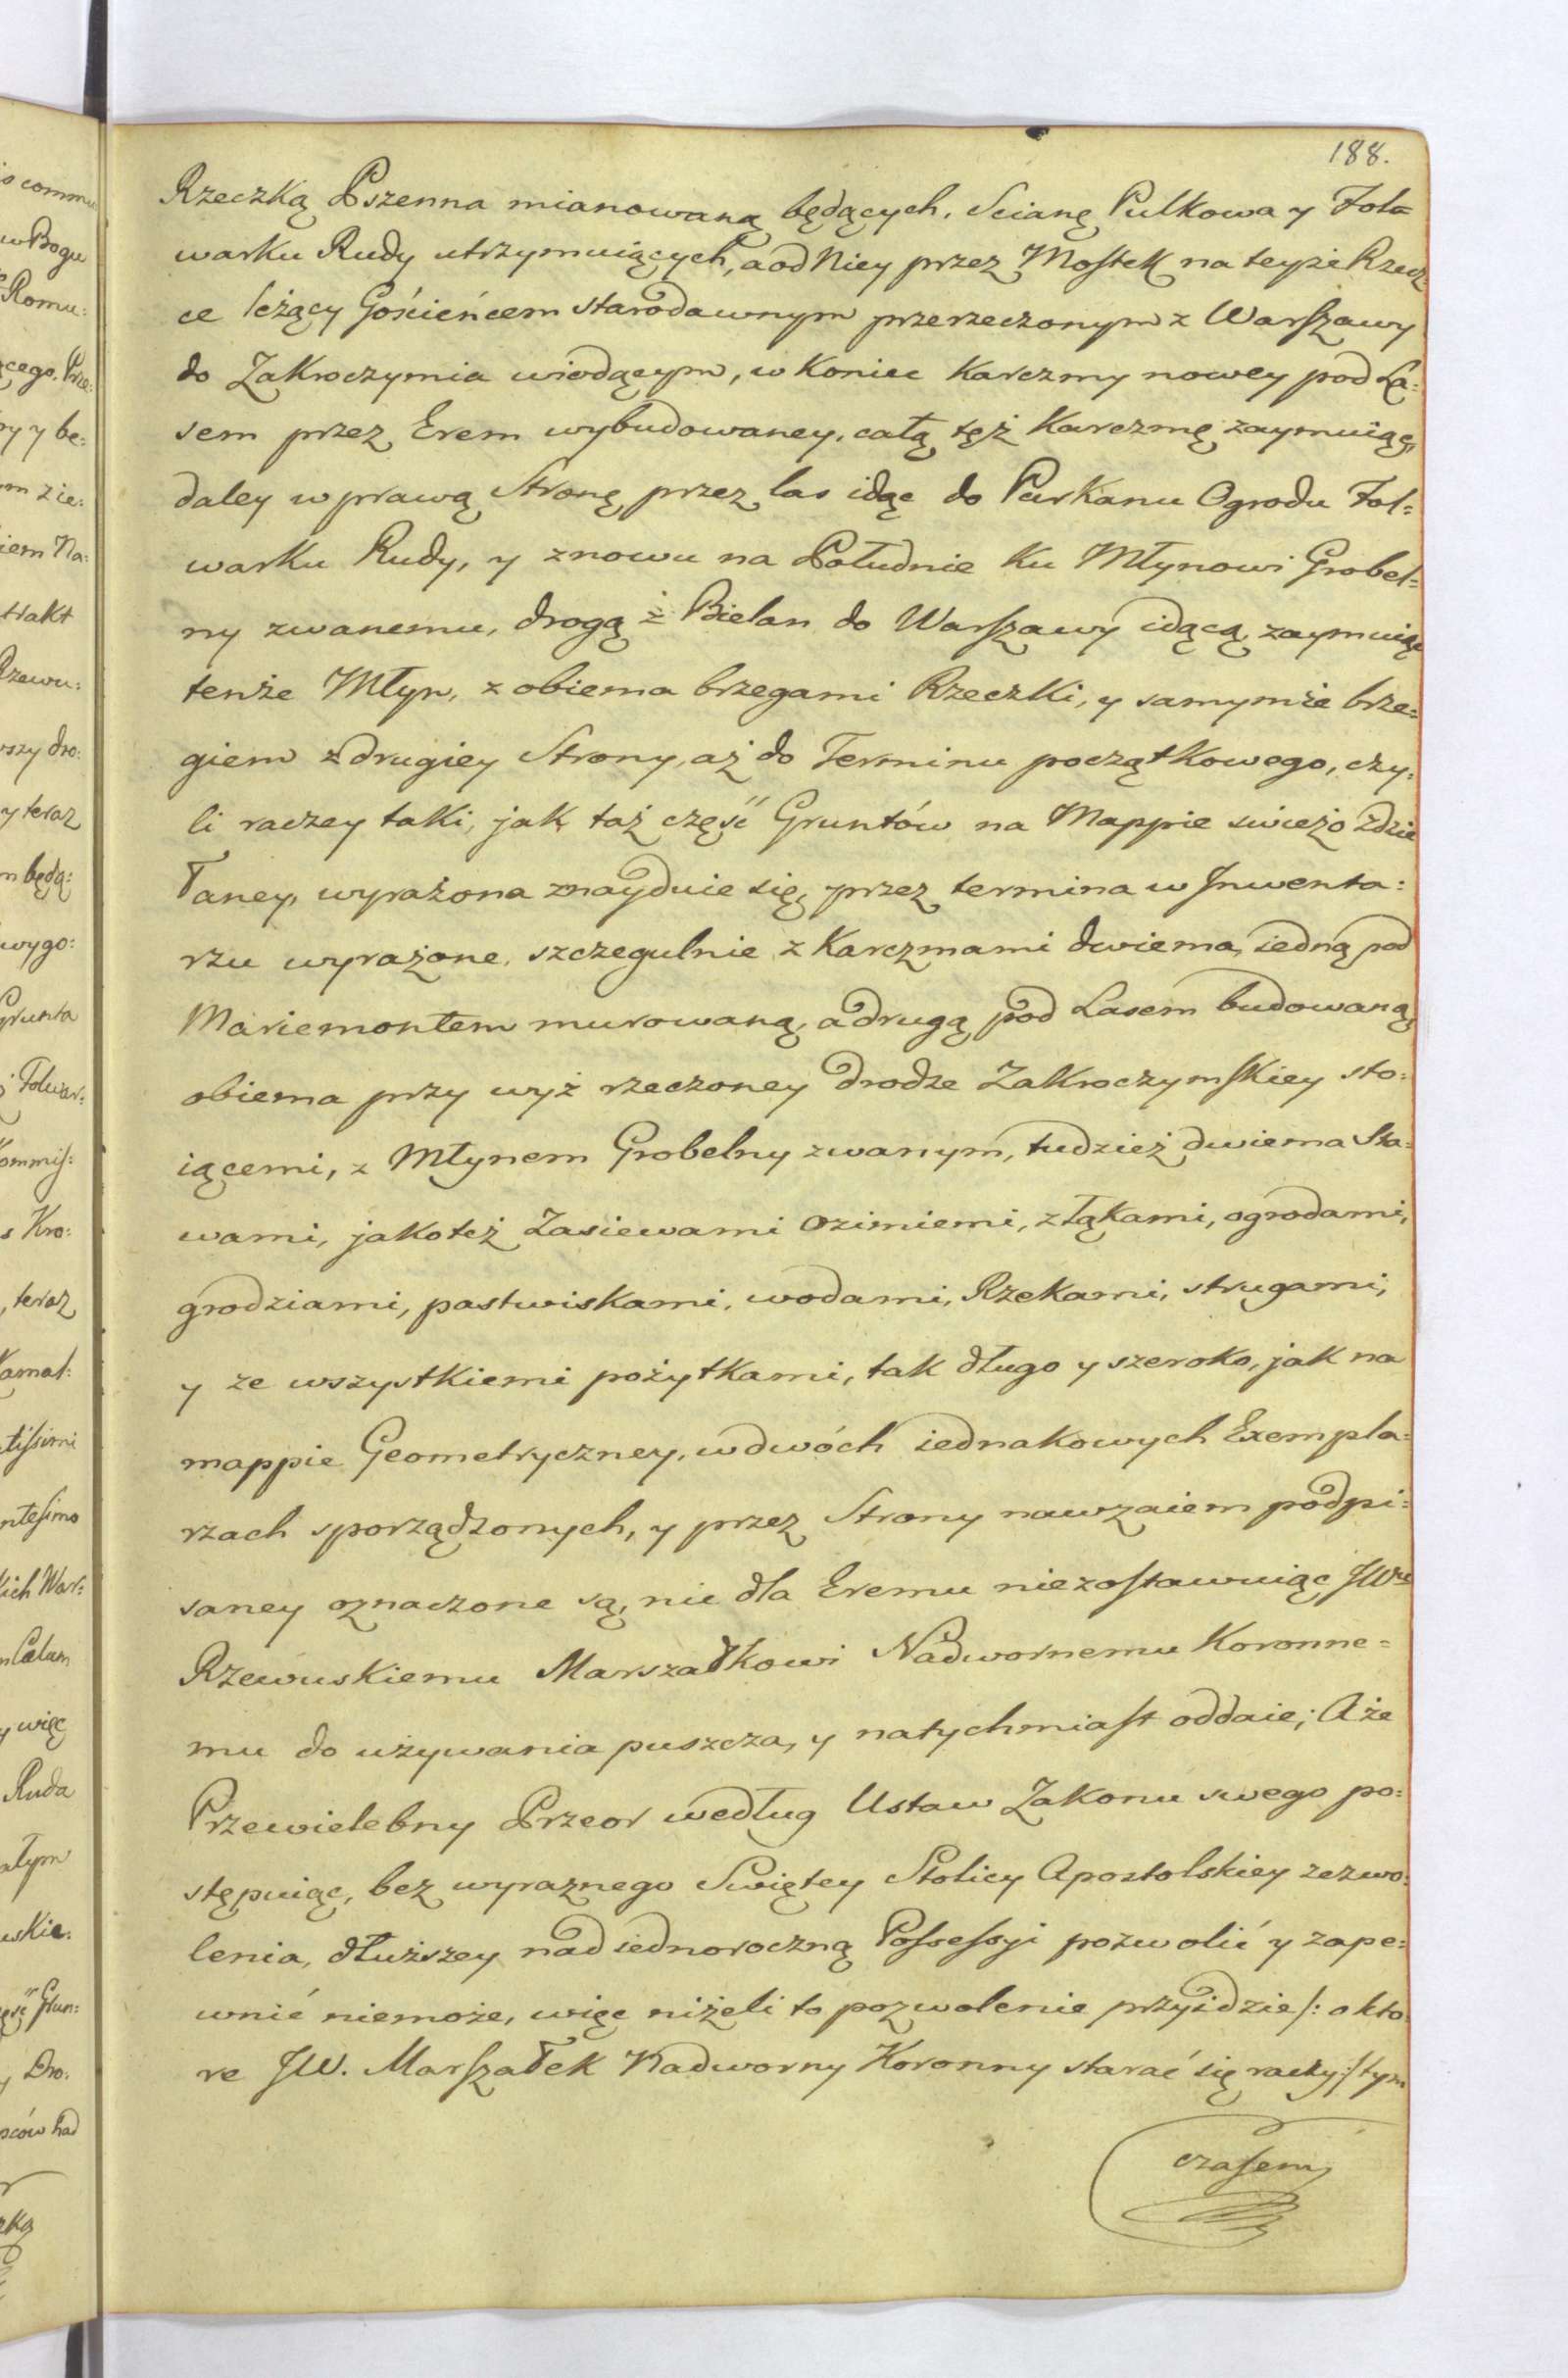 188.
Rzeczką Pszenna mianowaną będących, Scianę Pulkowa y Fol=
warku Rudy utrzymuiących, a od Niey przez Mostek na teyże Rzecz
ce leżący Gościńcem starodawnym przerzeczonym z Warszawy
do Zakroczymia wiodącym, w Koniec Karczmy nowey pod La:
sem przez Erem wybudowaney, całą tęż Karczmę zaymuiąc,
daley w prawą Stronę przez las idąc do Parkanu Ogrodu Fol:
warku Rudy, y znowu na Południe Ku Młynowi Grobel=
ny zwanemu, drogą z Bielan do Warszawy idącą zaymuiąc
tenże Młyn, z obiema brzegami Rzeczki, y samymże brze=
giem z drugiey Strony, aż do Terminu początkowego, czy:
li raczey taki, jak taż część Gruntów na Mappie swieżo zdzie
łaney, wyrażona znayduie się, przez termina w Jnwenta:
rzu wyrażone, szczegulnie z Karczmami dwiema, iedną pod
Mariemontem murowaną, a drugą pod Lasem budowaną,
obiema przy wyż rzeczoney drodze Zakroczymskiey sto:
iącemi, z Młynem Grobelny zwanym, tudzież dwiema Sta:
wami, jakoteż Zasiewami Ozimiemi, z łąkami, ogrodami,
grodziami, pastwiskami, wodami, Rzekami, strugami,
y ze wszystkiemi pożytkami, tak długo y szeroko, jak na
mappie Geometryczney, w dwóch iednakowych Exempla=
rzach sporządzonych, y przez Strony nawzaiem podpi=
saney oznaczone są, nic dla Eremu niezostawuiąc, JWu
Rzewuskiemu Marszałkowi Nadwornemu Koronne=
mu do używania puszcza, y natychmiast oddaie; A że
Przewielebny Przeor według Ustaw Zakonu swego po:
stępuiąc, bez wyraznego Swiętey Stolicy Apostolskiey zezwo:
lenia, dłuższey nad iednoroczną Possessyi pozwolić y zape=
wnić niemoże, więc niżeli to pozwolenie przyidzie /: o kto
re JW. Marszałek Nadworny Koronny starać się raczy :/ tym
czasem